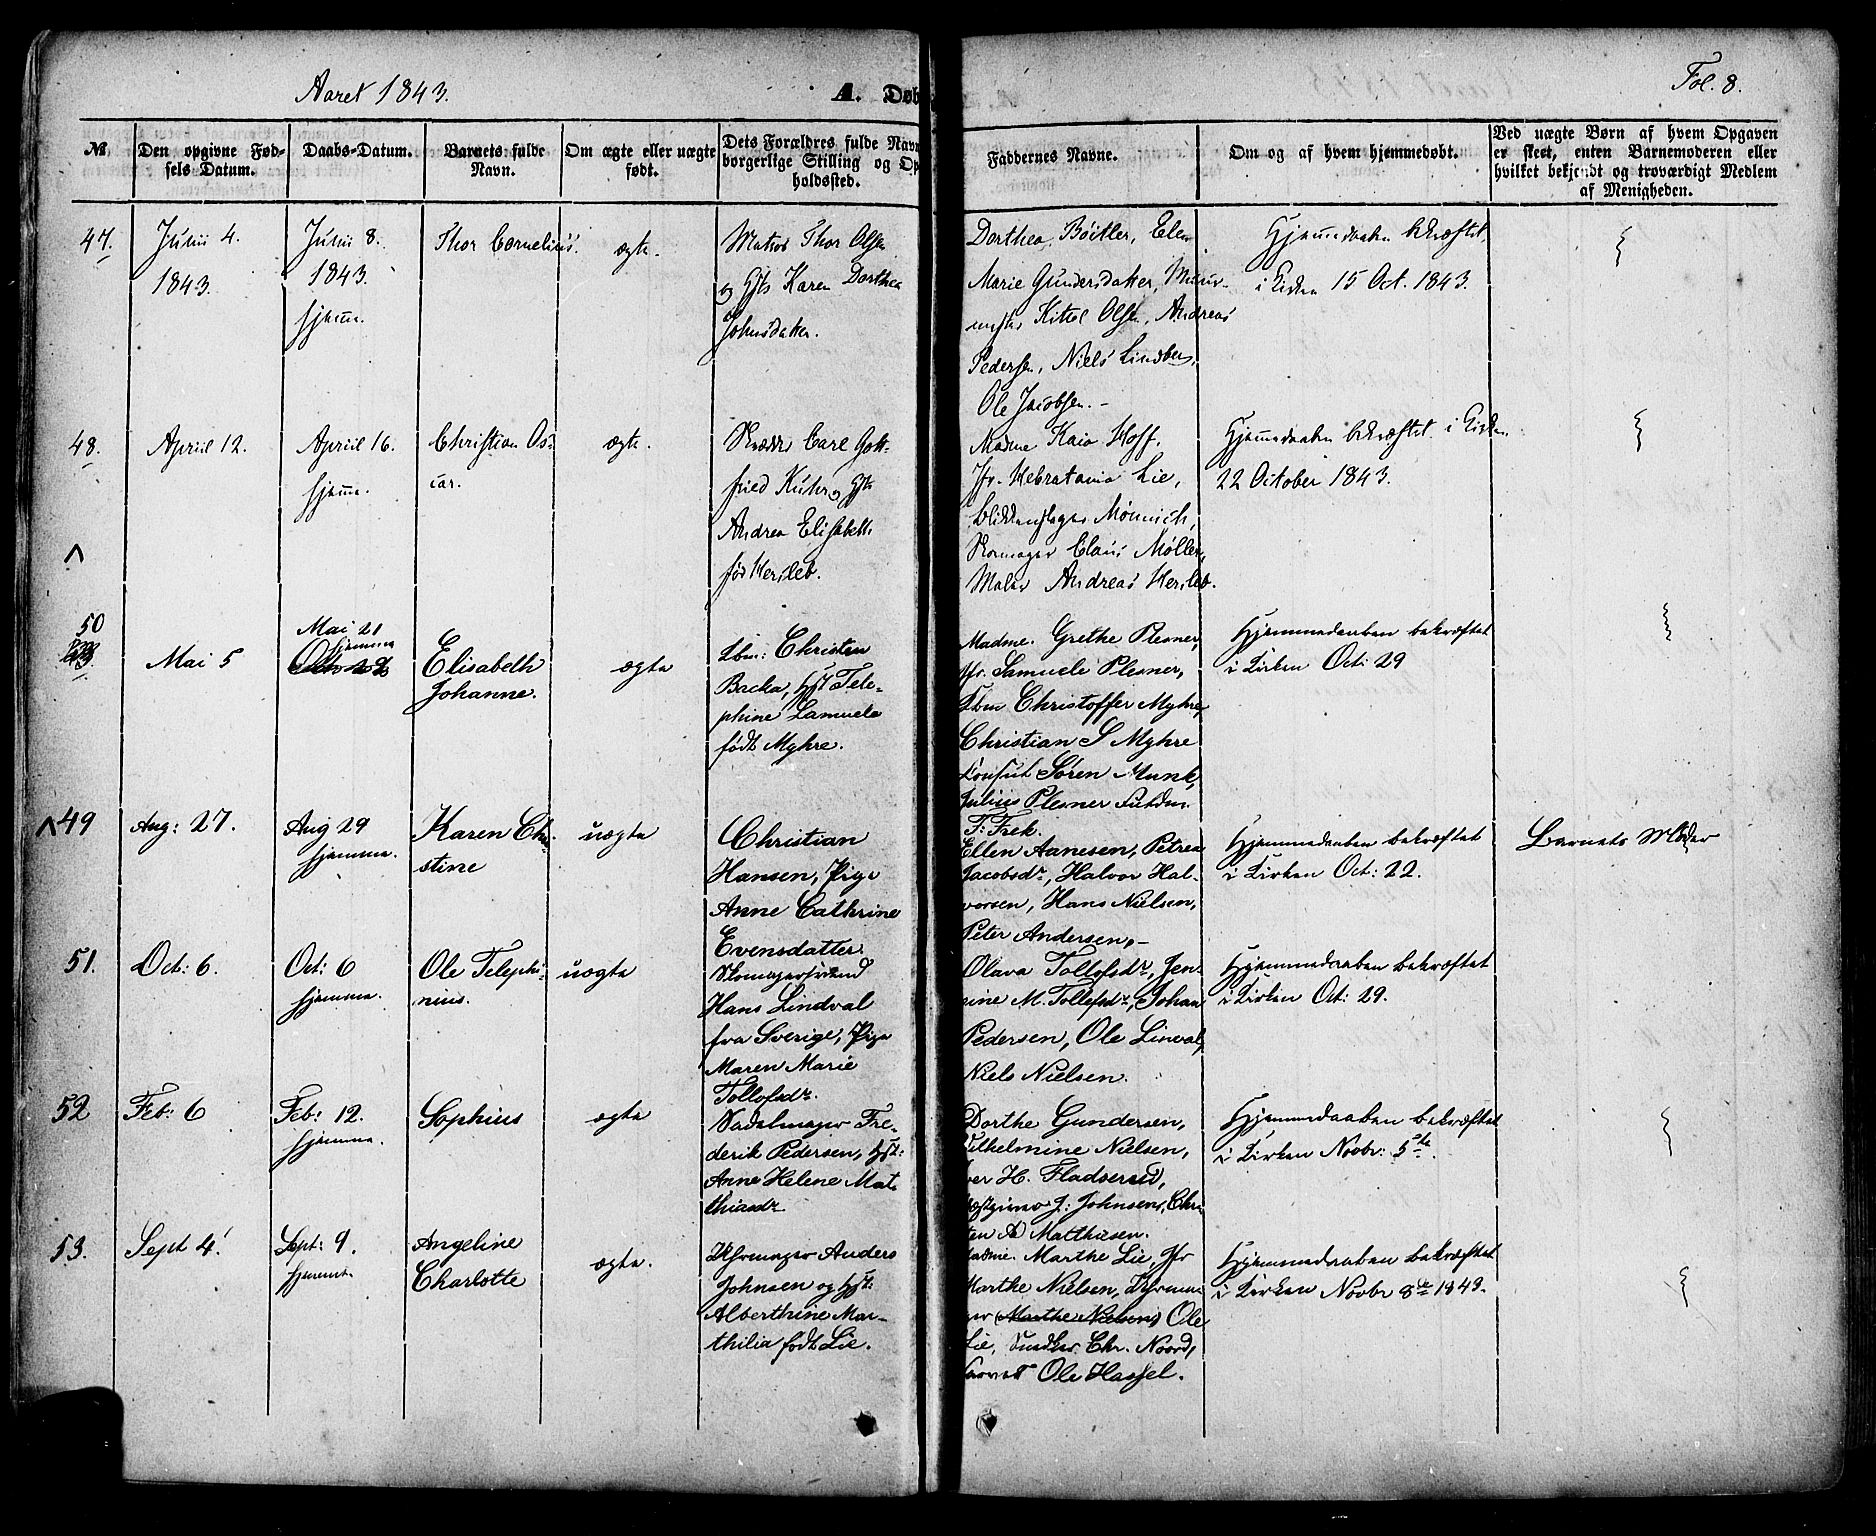 Aaret 1843.
A. Døb
Fol. 8.
№
Den opgivne Fød-
sels Datum.
Daabs-Datum.
Barnets fulde
Navn.
Om ægte eller uægte
født.
Dets Forældres fulde Navn
borgerlige Stilling og Op
holdssted.
Faddernes Navne.
Om og af hvem hjemmedøbt.
Ved uægte Børn af hvem Opgaven
er skeet, enten Barnemoderen eller
hvilket bekjendt og troværdigt Medlem
af Menigheden.
47.
Julii 4.
1843.
Julii 8.
1843.
hjemme.
Thor Cornelius.
ægte.
Matros Thor Olsen
og Hst Karen Dorthea
Johnsdatter.
Dorthea Böitler, Elen
Marie Gundersdatter, Muur-
mester Kittel Olsen, Andreas
Pedersen, Niels Lindberg,
Ole Jacobsen. -
Hjemmedaaben bekræftet
i Kirken 15 Oct. 1843.
48.
April 12.
April 16.
hjemme.
Christian Os-
car.
ægte.
Skrædder Carl Gott-
fried Kuhr og Hst
Andrea Elisabeth
fød Hersleb.
Madme Kaia Hoff.
Jfr. Lie,
Blikkenslager Mönnich,
Skomager Claus Møller,
Maler Andreas Hersleb.
Hjemmedaaben bekræftet i Kirken
22 October 1843.
50
Mai 5
Mai 21
hjemme
Elisabeth
Johanne.
ægte
Kbm: Christen
Backa, Hst Tele-
phine Lamuele
født Myhre.
Madme. Grethe Plesner,
Jfr. Samuele Plesner,
Kbm Christoffer Myhre,
Christian S Myhre
Konsul Søren Munk,
Julius Plesner
F: Frek.
Hjemmedaaben bekræftet
i Kirken Oct: 29
^49
Aug: 27.
Aug 29
hjemme.
Karen Chri-
stine
uægte
Christian
Hansen, Pige
Anne Cathrine
Evensdatter.
Ellen Aanesen, Petrea
Jacobsdr, Halvor Hal-
vorsen, Hans Nielsen,
Peter Andersen, -
Hjemmedaaben bekræftet
i Kirken Oct: 22.
Barnets Moder
51.
Oct: 6.
Oct: 6
hjemme.
Ole Telephi-
nius.
uægte
Skomagersvend
Hans Lindval
fra Sverige, Pige
Maren Marie
Tollofsdr.
Olava Tollofsdr, Jen-
nine M. Tollefsdr, Johan
Pedersen, Ole Linval,
Niels Nielsen.
Hjemmedaaben bekræftet
i Kirken Oct: 29.
52
Feb: 6
Feb: 12.
hjemme.
Sophius
ægte
Sadelmager Fre-
derik Pedersen, Hst:
Anne Helene Mat-
thiasdr
Dorthe Gundersen,
Vilhelmine Nielsen,
Iver H. Fladsrud,
J: Johnsen, Chri-
sten A Matthisen.
Hjemmedaaben bekræftet
i Kirken Novbr: 5te.
53.
Sept 4.
Sept: 9.
hjemme.
Angeline
Charlotte
ægte.
Skomager Anders
Johnsen og Hst:
Alberthine Mar-
thilia født Lie.
Madme. Marthe Lie, Jfr
Marthe Nielsen, Skoma-
ger (Marthe Nielsen) Ole
Lie, Snedker Chr. Noord,
Ole Hassel.
Hjemmedaaben bekræftet
i Kirken Novbr 8de 1843.